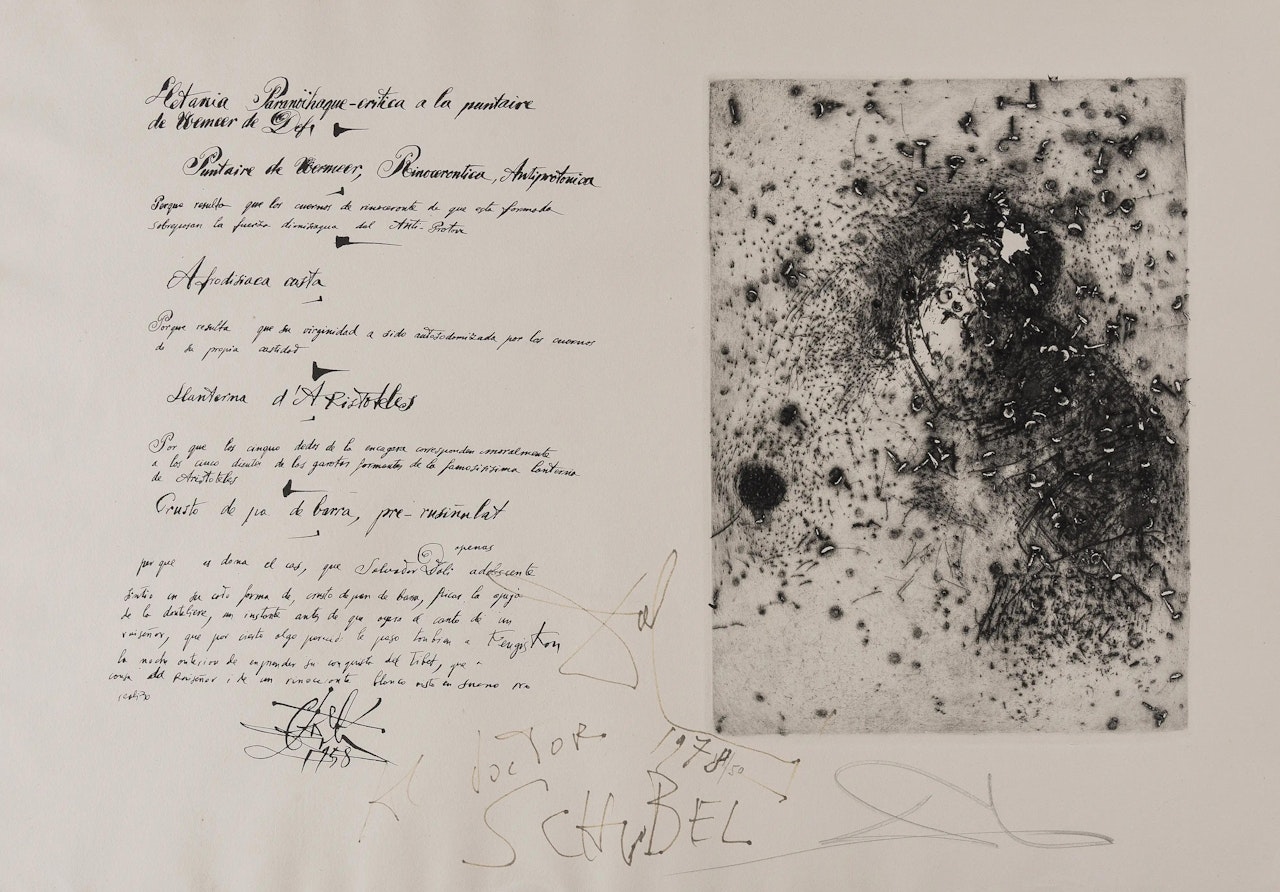 Lletania Paranöihaque-critica a la puntaire
de Wermeer de Delf
Puntaire de Wermeer, Rinocerontica, Antiprotonica
Porque resulta que los cuernos de rinoceronte de que esta formada
sobrepasan la fuerza del Anti-Proton
Afrodisiaca casta
Porque resulta que su virginidad a sido autosodomizada por los cuernos
de su propia castidad
Llanterna d'ARistoteles
Por que los cinquo dedos de la corresponden moralmente
a los cinco dientes de los garotos formantes de la famosisisima lanterna
de Aristoteles
Crusto de pa de barra, pre-rusiñolat
por que es dona el cas, que Salvador Dali apenas adolescente
sintio en su forma de, crusto de pan de barra, la
de la dentelière, un instante antes de que oyera el canto de un
ruiseñor, que por cierto algo le paso tambien a
la noche anterior de emprender su conquista del Tibet, que
del Ruiseñor i de un rinoceronte blanco visto en
1958
Al doctor 1978
SCHUBEL